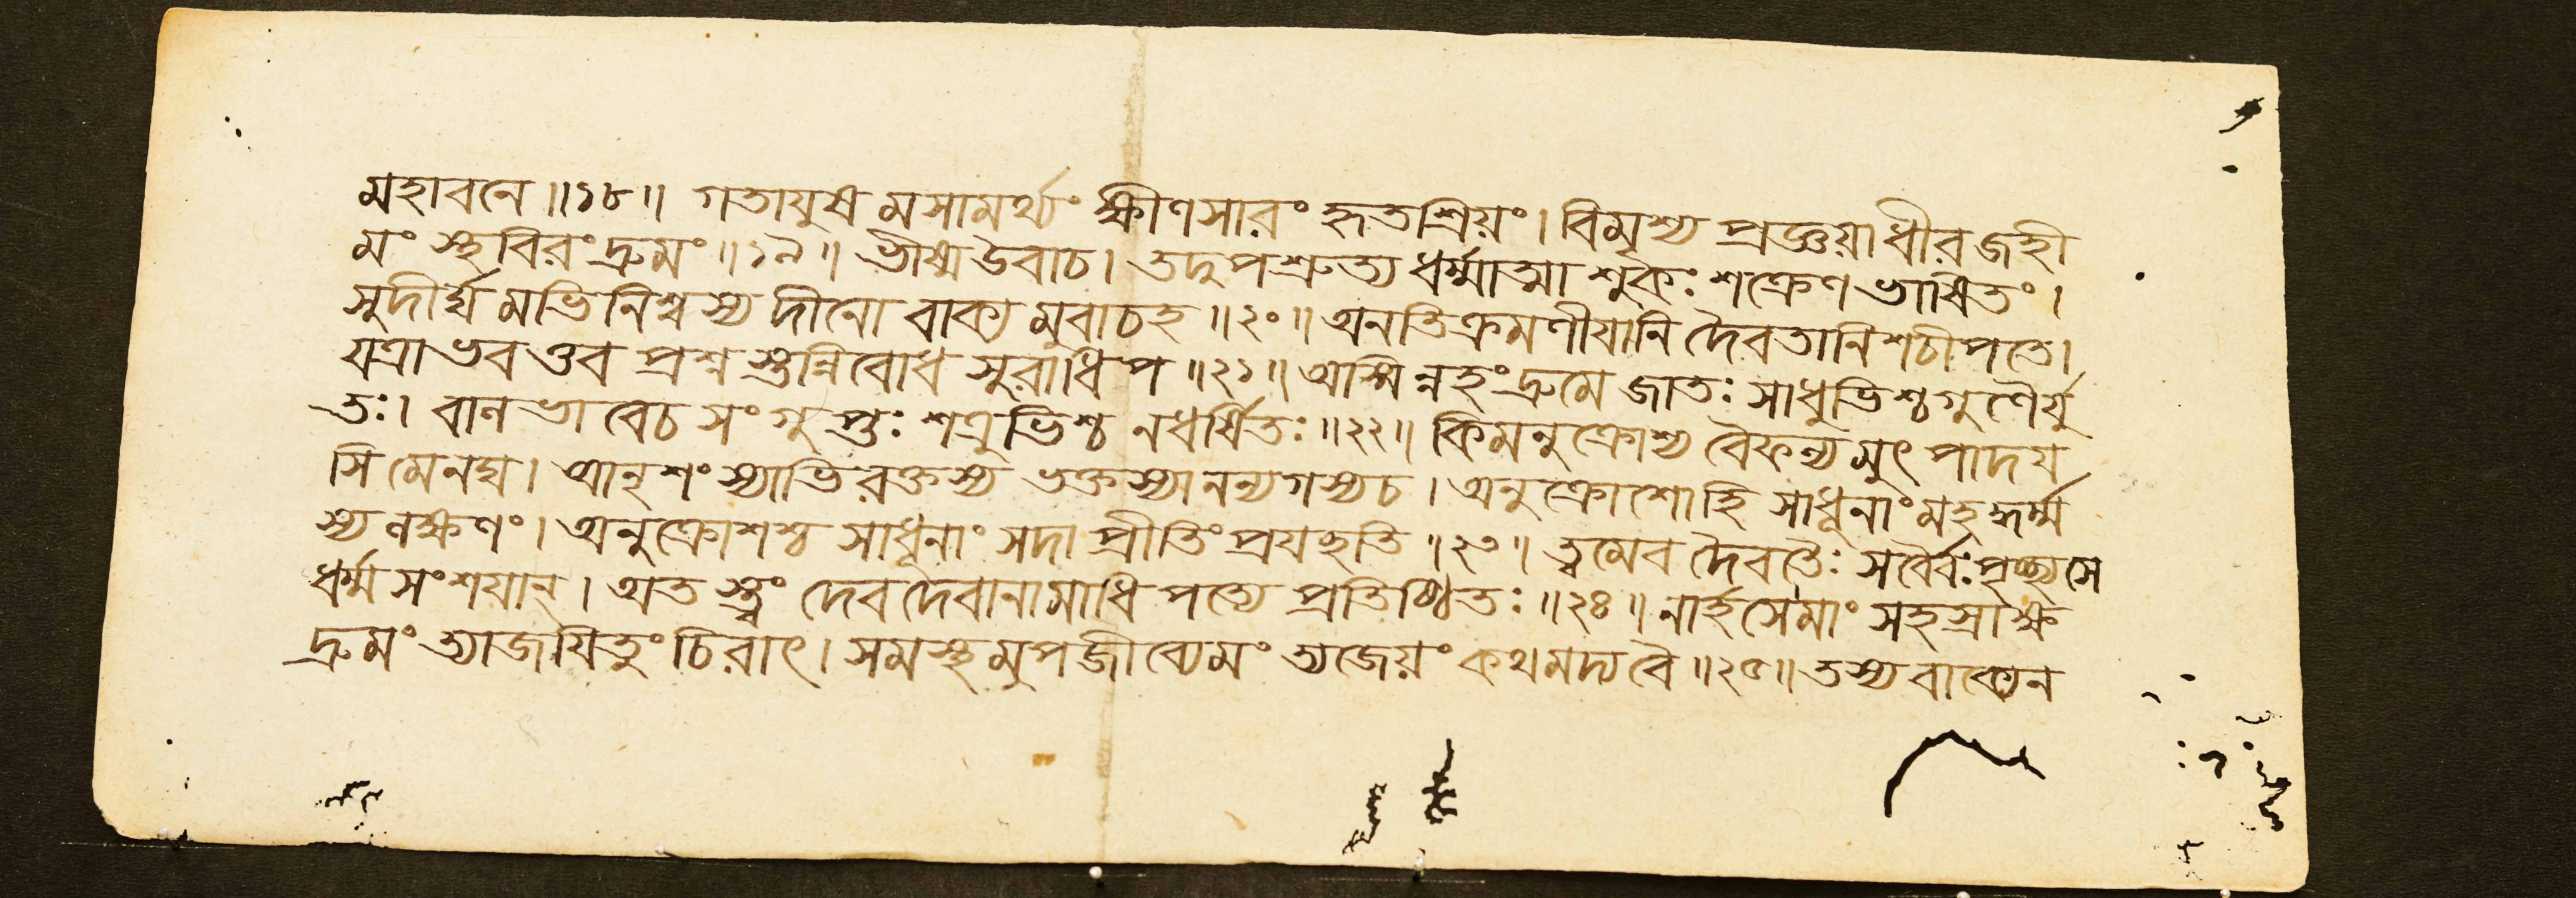 মহাবনে॥১৮॥ গতাযুষ মসামর্থ্যং ক্ষীণসারং হৃতশ্রিয়ং। বিমৃশ্য প্রজ্ঞয়াধীর জহী
মং স্থবিরং দ্রুমং॥১৯॥ ভীষ্ম উবাচ। তদুপশ্রুত্য ধর্ম্মাত্মা শুকঃ শক্রেণ ভাষিতং।
সুদীর্ঘ মভিনিশ্বস্য দীনো বাক্য মুবাচহ॥২০॥ অনতিক্রমণীযানি দৈবতানি শচীপতে।
যত্রাভবত্তব প্রশ্ন স্তন্নিবোধ সুরাধিপ॥২১॥ অস্মিন্নহং দ্রুমে জাতঃ সাধুভিশ্চ গুণৈর্যু
তঃ। বালভাবেচ সংগুপ্তঃ শত্রুভিশ্চ নধর্ষিতঃ॥২২॥ কিমনুক্রোশ্য বৈফল্য মুৎপাদয
সি মেনঘ। আনৃশংস্যাভিরক্তস্য ভক্তস্যানন্যগস্যচ। অনুক্রোশোহি সাধূনাং মহদ্ধর্ম্ম
স্য লক্ষণং। অনুক্রোশশ্চ সাধূনাং সদা প্রীতিং প্রযচ্ছতি॥২৩॥ ত্বমেব দৈবতৈঃ সর্বৈঃ পৃচ্ছ্যসে
ধর্ম্ম সংশয়ান্। অত স্ত্বং দেব দেবানামাধিপত্যে প্রতিষ্ঠিতঃ॥২৪॥ নার্হসেমাং সহস্রাক্ষ
দ্রুমং ত্যাজযিতুং চিরাৎ। সমস্থমুপজীব্যেমং ত্যজেয়ং কথমদ্য বৈ॥২৫॥ তস্য বাক্যেন